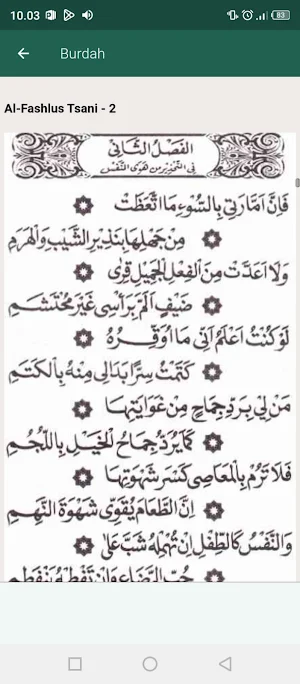 10.03
83
Burdah
Al-Fashlus Tsani - 2
الفَصْلُ الثَّانِي
فِي التَّحْذِيرِ مِنْ هَوَى النَّفْسِ
فَإِنَّ أَمَّارَتِي بِالسُّوءِ مَا اتَّعَظَتْ
مِنْ جَهْلِهَا بِنَذِيرِ الشَّيْبِ وَالْهَرَمِ
وَلَا أَعَدَّتْ مِنَ الْفِعْلِ الْجَمِيلِ قِرَى
ضَيْفٍ أَلَمَّ بِرَأْسِي غَيْرَ مُحْتَشَمِ
لَوْ كُنْتُ أَعْلَمُ أَنِّي مَا أُوَقِّرُهُ
كَتَمْتُ سِرًّا بَدَا لِي مِنْهُ بِالْكَتَمِ
مَنْ لِي بِرَدِّ جِمَاحٍ مِنْ غَوَايَتِهَا
كَمَا يُرَدُّ جِمَاحُ الْخَيْلِ بِاللُّجُمِ
فَلَا تَرُمْ بِالْمَعَاصِي كَسْرَ شَهْوَتِهَا
إِنَّ الطَّعَامَ يُقَوِّي شَهْوَةَ النَّهِمِ
وَالنَّفْسُ كَالطِّفْلِ إِنْ تُهْمِلْهُ شَبَّ عَلَى
حُبِّ الرَّضَاعِ وَإِنْ تَفْطِمْهُ يَنْفَطِمِ